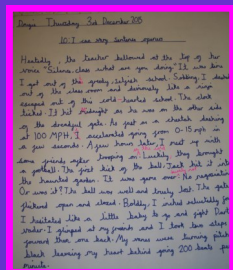 Thursday 3rd December 2015
Hastily, the teacher bellowed at the top of her
voice "Silence class what are you doing". It was time
I got out of this greedy, selfish school. Suddenly, I dashed
out of the class room and luminously like a ninja
escaped out of this cold-hearted school. The clock
ticked. It hit midnight as he was on the other side
of the dreadful gate. As fast as a cheetah basking
at 100 MPH, I accelerated going from 0-15 mph in
a few seconds. A few hours later, I met up with
some friends after Luckily they brought
a football. The first kick of the ball, Jack hit it into
the haunted garden. It was game over. No
Or was it? The ball was well and truly lost. The gate
flickered open and closed. Boldly, I inched reluctantly for
I hesitated like a little baby to go and fight Dark
Vader. I glimpsed at my friends and I took two steps
forward then one back. My veins were turning pitch
black hearing my heart behind going 200 beats per
minute.